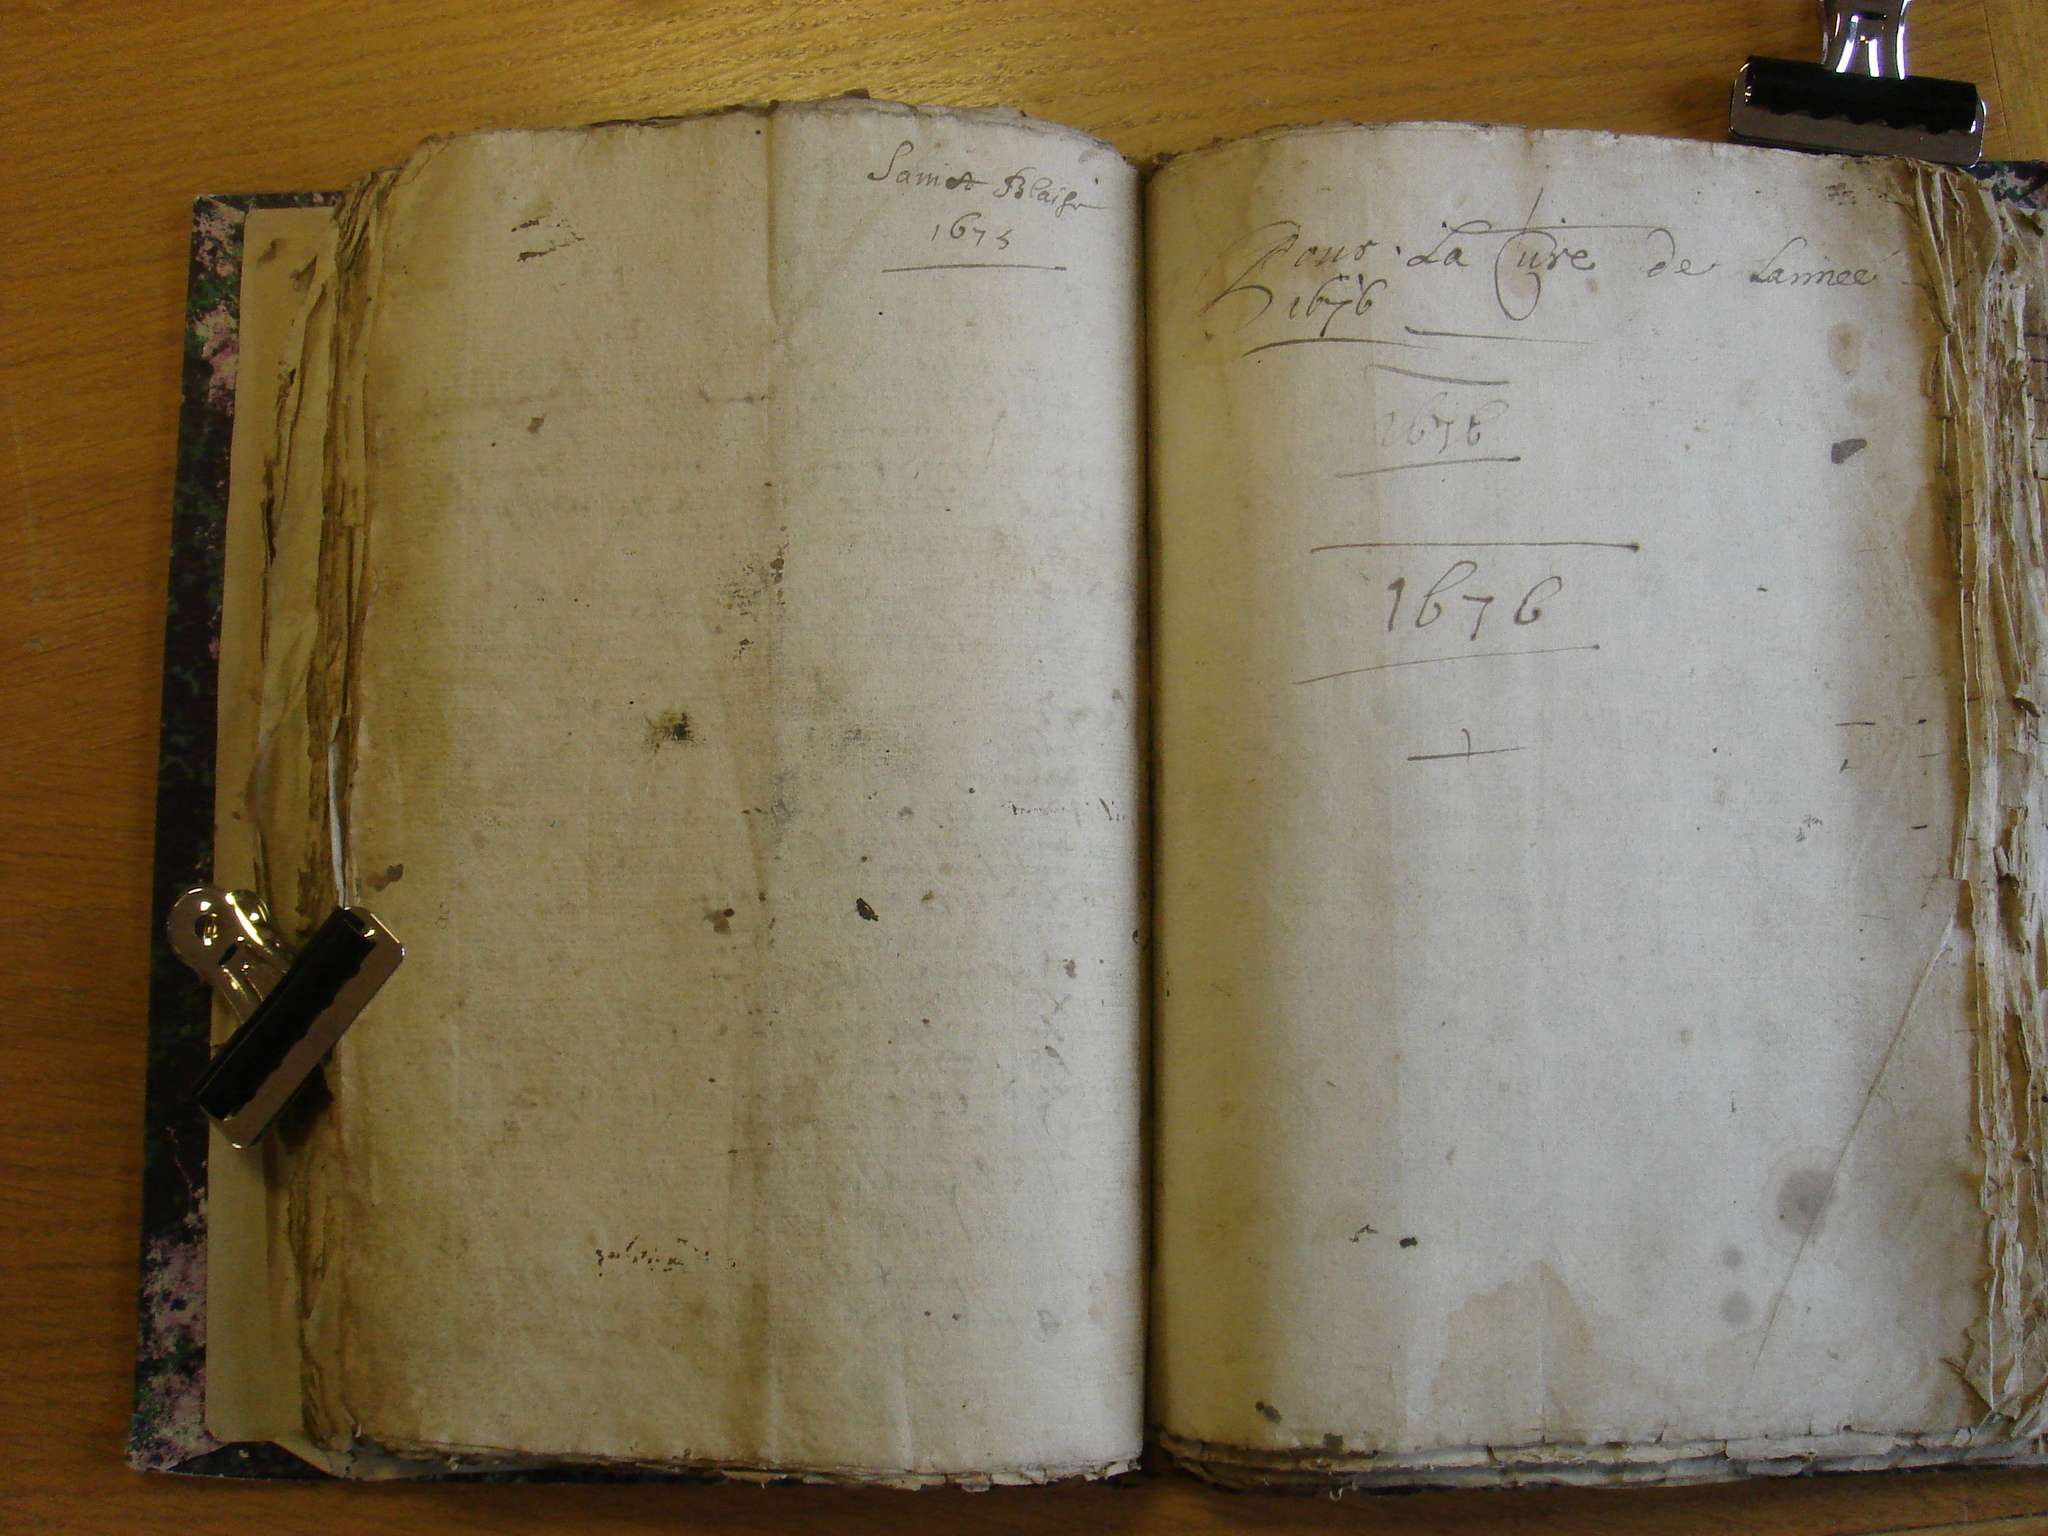 Sainct Blaise
1675
Pour La Cure de Lannee
1676
1676
1676